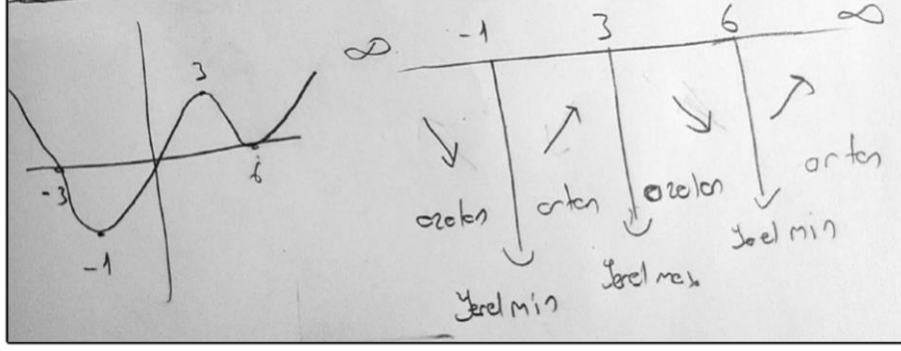 3
∞
-3
6
-1
-1 3 6 ∞
azalan artan azalan artan
Yerel min Yerel max Yerel min